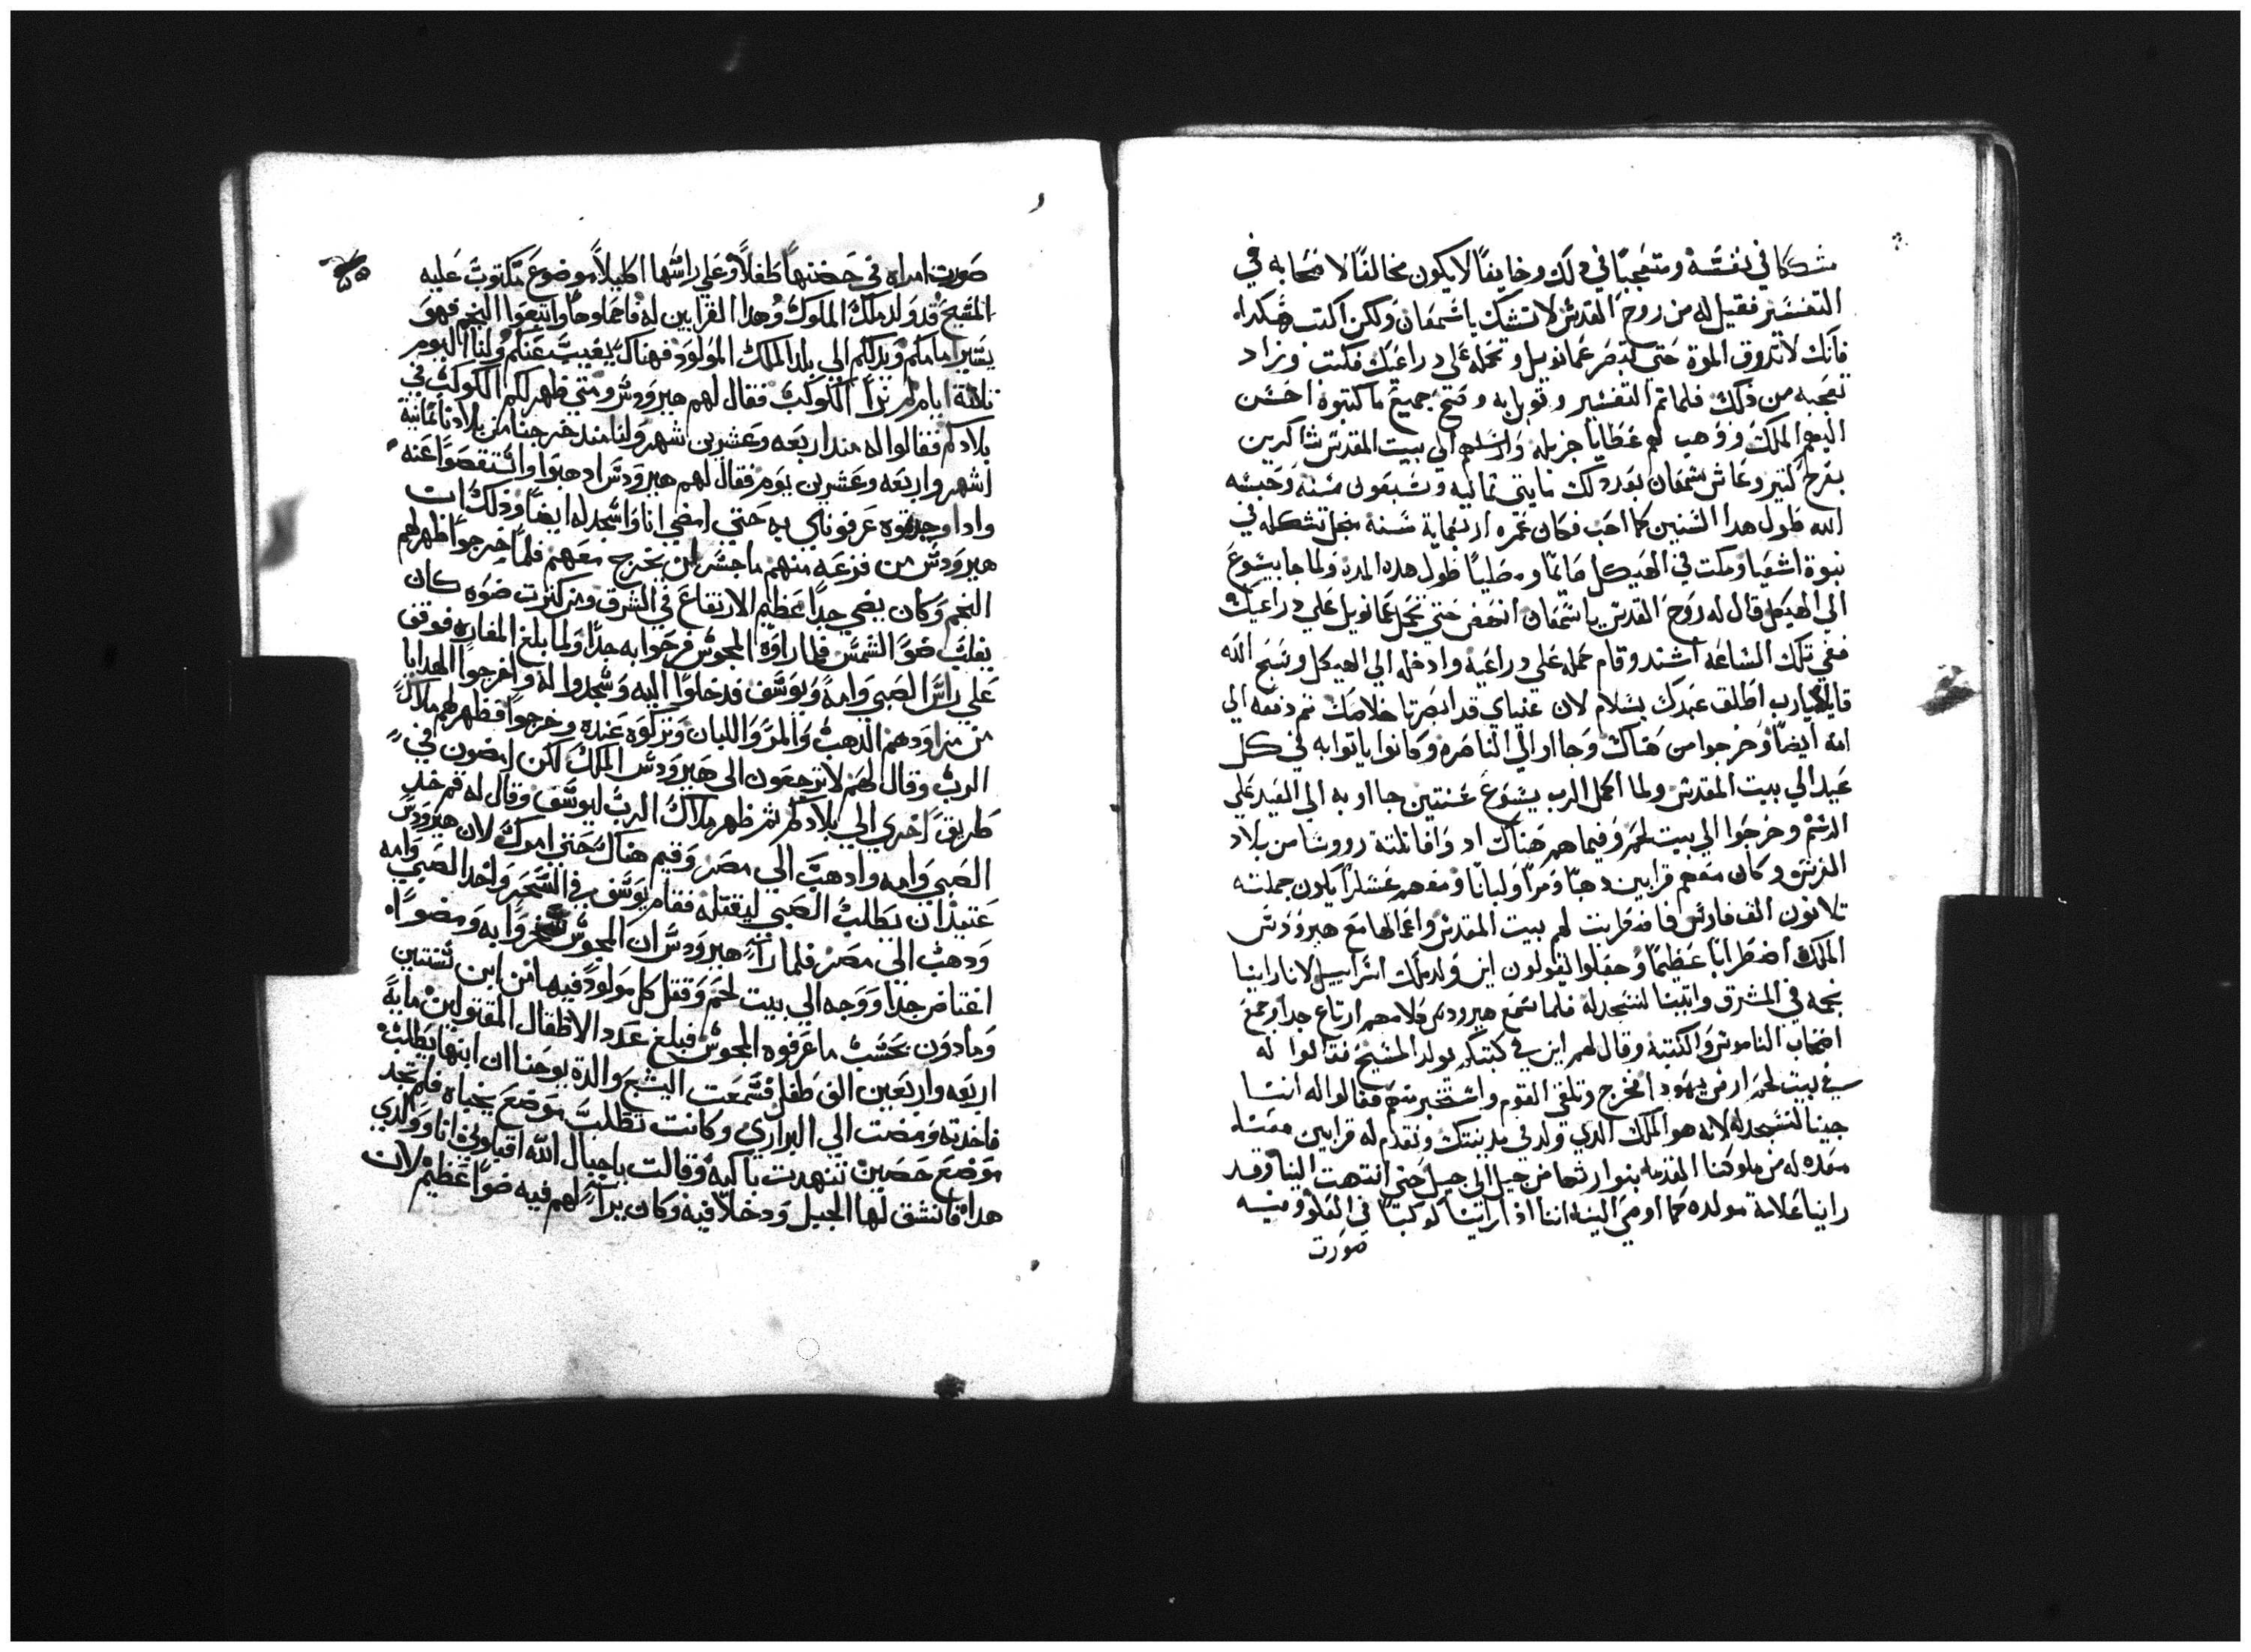 مشككا في نفسه ومتعجبا في دلك وخايفا لا يكون مخالفا لاصحابه في
التفسير فقيل له من روح القدس لا تشك يا سمعان ولكن اكتب هكداه
فانك لا تدوق الموة حتي تبصر عمانويل وتحمله علي دراعيك فكتب وزاد
تعجبه من دلك فلما تم التفسير وقوبل به وصح جميع ما كتبوه احسن
اليهم الملك ووهب لهم عطايا جزيله وارسلهم الي بيت المقدس شاكرين
بفرح كتير وعاش سمعان بعد دلك مايتي تمانيه وسبعون سنه وحبسه
الله طول هدا السنين كما احب فكان عمره اربعماية سنة من اجل تشككه في
نبوة اشعيا ومكت في الهيكل قايما ومصليا طول هده المدة ولما جا يسوع
الي الهيكل قال له روح القدس يا سمعان انهض حتي تحمل عمانويل علي دراعيك
ففي تلك الساعه اشتد وقام حمله علي دراعيه وادخله الي الهيكل وسبح الله
قايلا يارب اطلق عبدك بسلام لان عنياي قد ابصرتا خلاصك تم دفعه الي
امه ايضا وخرجوا من هناك وجااو الي الناصره وكانوا ياتوا به في كل
عيد الي بيت المقدس ولما اكمل الرب يسوع سنتين جااو به الي العيد علي
الرسم وخرجوا الي بيت لحم وفيما هم هناك اد وافا تلتة رووسا من بلاد
الفرس وكان معهم قرابين دهبا ومرا ولبانا ومعهم عسكرا يكون جملته
تلاتون الف فارس فاضطربت لهم بيت المقدس واعمالها مع هيرودس
الملك اضطرابا عظيما وجعلوا يقولون اين ولد ملك اسراييل لانا راينا
نجمه في المشرق واتينا لنسجد له فلما سمع هيرودس كلامهم ارتاع جدا وجمع
اصحاب الناموس والكتبة وقال لهم اين في كتبكم يولد المسيح فقالوا له
في بيت لحم ارض يهودا فخرج وتلقي القوم واستخبر منهم فقالوا له اننا
جينا لنسجد له لانه هو الملك الدي ولد في مدينتك ونقدم له قرابين معنا
معده له من ملوكنا المقدمه بتوارتها من جيل الي جيل حتي انتهت الينا وقد
راينا علامة مولده كما اومي الينه اننا اذا راينا كوكبا في العلو وفيه
صورت
صورت امراه في حضنها طفلا وعلي راسها اكليلا موضوع مكتوب عليه
المسيح قد ولد ملك الملوك وهدا القرابين له فاحملوها واتبعوا النجم فهو
يسير امامكم ويدلكم الي بلد الملك المولود فهناك يغيب عنكم ولنا اليوم
تلتة ايام لم نرا الكوكب فقال لهم هيرودس ومتي ظهر لكم الكوكب في
بلادكم فقالوا له مند اربعه وعشرين شهر ولنا مند خرجنا من بلادنا تمانية
اشهر واربعه وعشرين يوم فقال لهم هيرودس ادهبوا واستقصوا عنه
وادا وجدتوه عرفوناي به حتي امضي انا واسجد له ايضا ودلك ان
هيرودس من فزعه منهم ما جسر ان يخرج معهم فلما خرجوا ظهر لهم
النجم وكان يضي جدا عظيم الارتفاع في الشرق ومن كترت ضوه كان
يغلب ضو الشمس فلما راوه المجوس فرحوا به جدا ولما بلغ المغاره فوقف
علي راس الصبي وامه ويوسف فدخلوا اليه وسجدوا له واخرجوا الهدايا
من مزاودهم الدهب والمر واللبان وتركوه عنده وخرجوا فظهر لهم ملاك
الرب وقال لهم لا ترجعون الي هيرودس الملك لكن امضون في
طريق اخري الي بلادكم ثم ظهر ملاك الرب ليوسف وقال له قم خد
الصبي وامه وادهب الي مصر وقيم هناك حتي امرك لان هيرودس
عتيد ان يطلب الصبي ليقتله فقام يوسف في السحر واخد الصبي وامه
ودهب الي مصر فلما راي هيرودس ان المجوس سخروا به ومضوا
اغتاض جدا ووجه الي بيت لحم وقتل كل مولود فيها من ابن سنتين
وما دون بحسب ما عرفوه المجوس فبلغ عدد الاطفال المقتولين ماية
اربعه واربعين الف طفل فسمعت اليشبع والدة يوحنا ان ابنها يطلب
فاخدته ومضت الي البراري وكانت تطلب موضع يخباه فلم تجد
موضع حصين تنهدت باكيه وقالت يا جبال الله اقبلوني انا وولدي
هدا فانشق لها الجبل ودخلا فيه وكان يرا لهم فيه ضوا عظيم لان